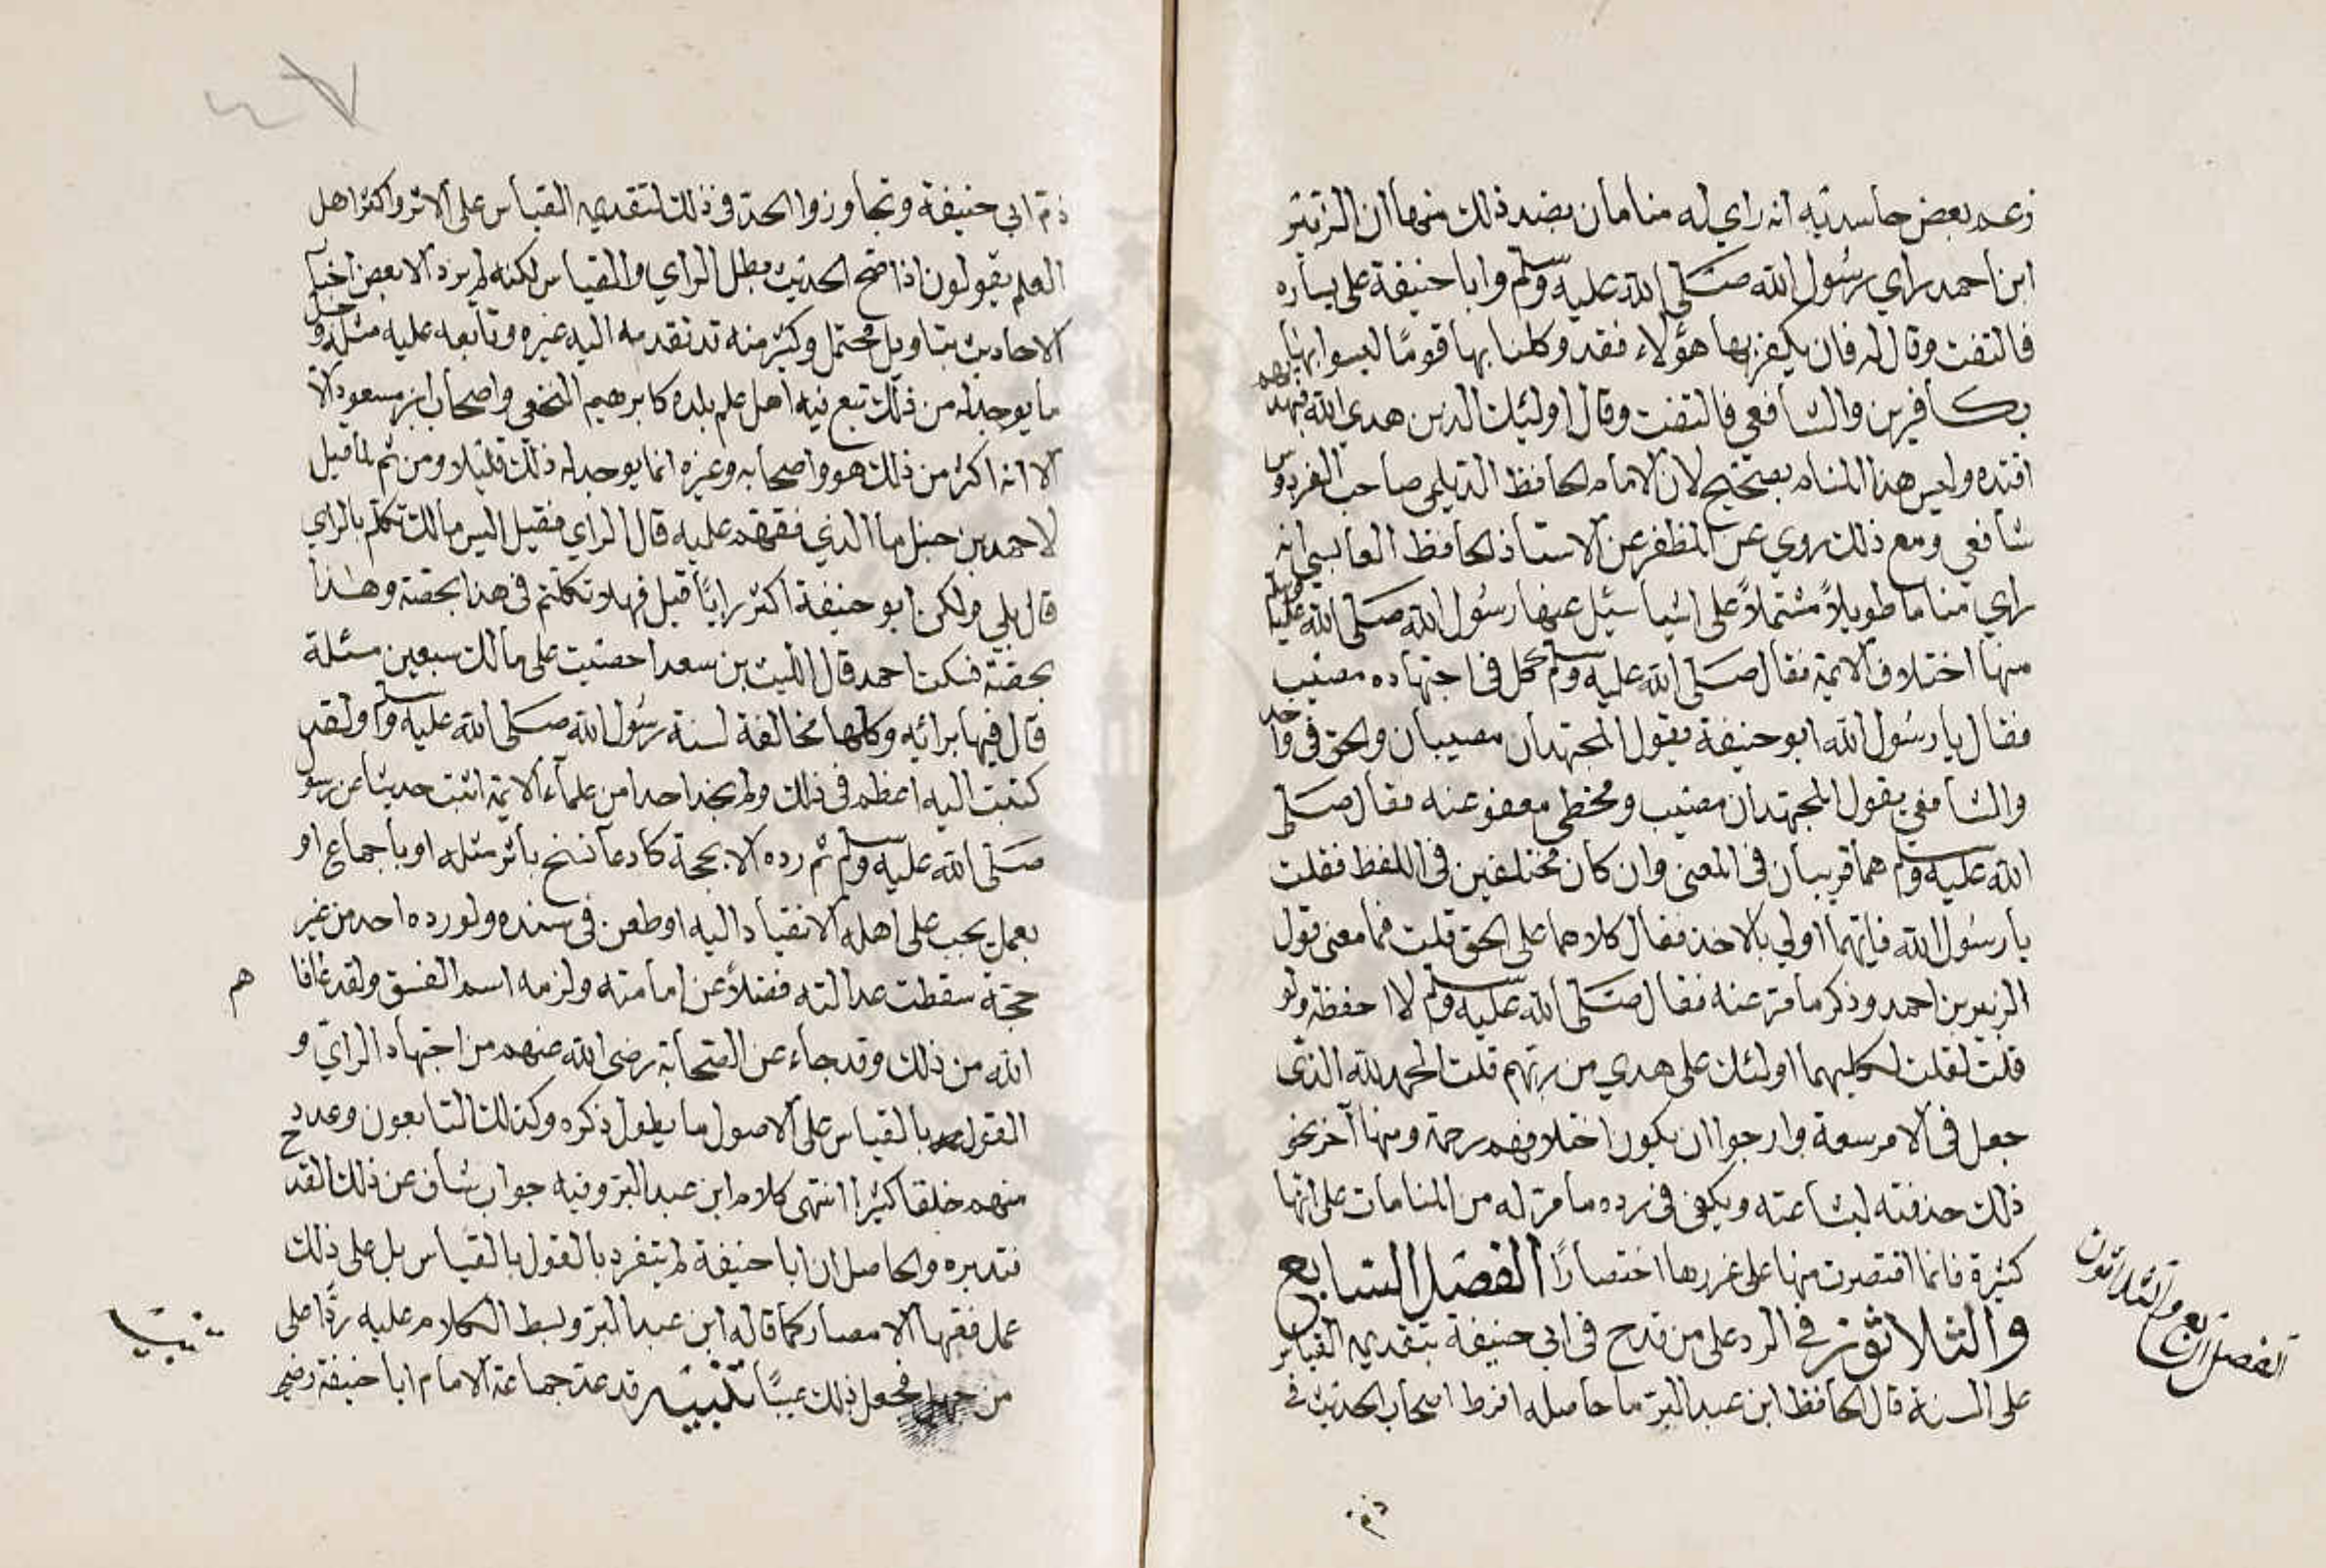 زعم بعض حاسديه انه راي له منامات بضد ذلك منها ان الزبير
ابن احمد راي رسول الله صلى الله عليه وسلم وابا حنيفة على يساره
فالتفت وقال له فان يكفر بها هؤلاء فقد وكلنا بها قوما ليسوا بها
بكافرين والشافعي فالتفت وقال اولئك الذين هدى الله فبهديهم
اقتده وليس هذا المنام بصحيح لان الامام الحافظ الديلمي صاحب الفردوس
شافعي ومع ذلك روي عن المظفر عن الاستاذ الحافظ القابسي انه
راي مناما طويلاً مشتملاً على اشيا سئل عنها رسول الله صلى الله عليه وسلم
منها اختلاف الائمة فقال صلى الله عليه وسلم كل في اجتهاده مصيب
فقال يا رسول الله ابو حنيفة يقول المجتهدان مصيبان والحق في واحد
والشافعي يقول المجتهدان مصيب ومخطي معفو عنه فقال صلى
الله عليه وسلم هما قريبان في المعنى وان كان مختلفين في اللفظ فقلت
يا رسول الله فايهما اولي بالاخذ فقال كلاهما على الحق قلت فما معنى قول
الزبير بن احمد وذكر ما مر عنه فقال صلى الله عليه وسلم لا احفظه ولو
قلت لقلت لكليهما اولئك على هدي من ربهم قلت الحمد لله الذي
جعل في الامر سعة وارجوا ان يكون اختلافهم رحمة ومنها آخر نحو
ذلك حذفته لبشاعته ويكفي في رده ما مر له من المنامات على انها
كثيرة فانما اقتصرت منها على غررها اختصارًا الفصل السابع
والثلاثون في الرد على من قدح في ابي حنيفة بتقديم القياس
على السنة قال الحافظ ابن عبد البر ما حاصله افرط اصحاب الحديث في
الفصل السابع والثلاثون
ذم
ذم ابي حنيفة وتجاوزوا الحد في ذلك لتقديمه القياس على الاثر واكثر اهل
العلم يقولون اذا صح الحديث بطل الراي والقياس لكنه لم يرد الا بعض اخبار
الاحاديث بتاويل محتمل وكثير منه قد تقدمه اليه غيره وتابعه عليه مثله وجل
ما يوجد له من ذلك تبع فيه اهل علم بلده كابرهيم النخعي واصحاب ابن مسعود الا
الا انه اكثر من ذلك هو واصحابه وغيره انما يوجد له ذلك قليلا ومن ثم لما قيل
لاحمد بن حنبل ما الذي نقمتم عليه قال الراي فقيل اليس مالك تكلم بالراي
قال بلي ولكن ابو حنيفة اكثر رايًا قيل فهلا تكلمتم في هذا بحصته وهذا
بحصته فسكت احمد قال الليث بن سعد احصيت على مالك سبعين مسئلة
قال فيها برائه وكلها مخالفة لسنة رسول الله صلى الله عليه وسلم ولقد
كتبت اليه اعظم في ذلك ولم نجد احدا من علماء الائمة اثبت حديثا عن رسول
صلى الله عليه وسلم ثم رده الا بحجة كادعا نسخ باثر مثله او باجماع او
بعمل يجب على اهله الانقياد اليه او طعن في سنده ولو رده احد من غير
حجة سقطت عدالته فضلاً عن امامته ولزمه اسم الفسق ولقد عافاهم
الله من ذلك وقد جاء عن الصحابة رضي الله عنهم من اجتهاد الراي و
القول بالقياس على الاصول ما يطول ذكره وكذلك التابعون وعدد
منهم خلقا كثيرا انتهى كلام ابن عبد البر وفيه جواب شاف عن ذلك القدح
فتدبره والحاصل ان ابا حنيفة لم يتفرد بالقول بالقياس بل على ذلك
عمل فقها الامصار كما قاله ابن عبد البر وبسط الكلام عليه ردًا على
من فجعل ذلك عيبًا تنبيه قد عد جماعة الامام ابا حنيفة رضي
تنبيه